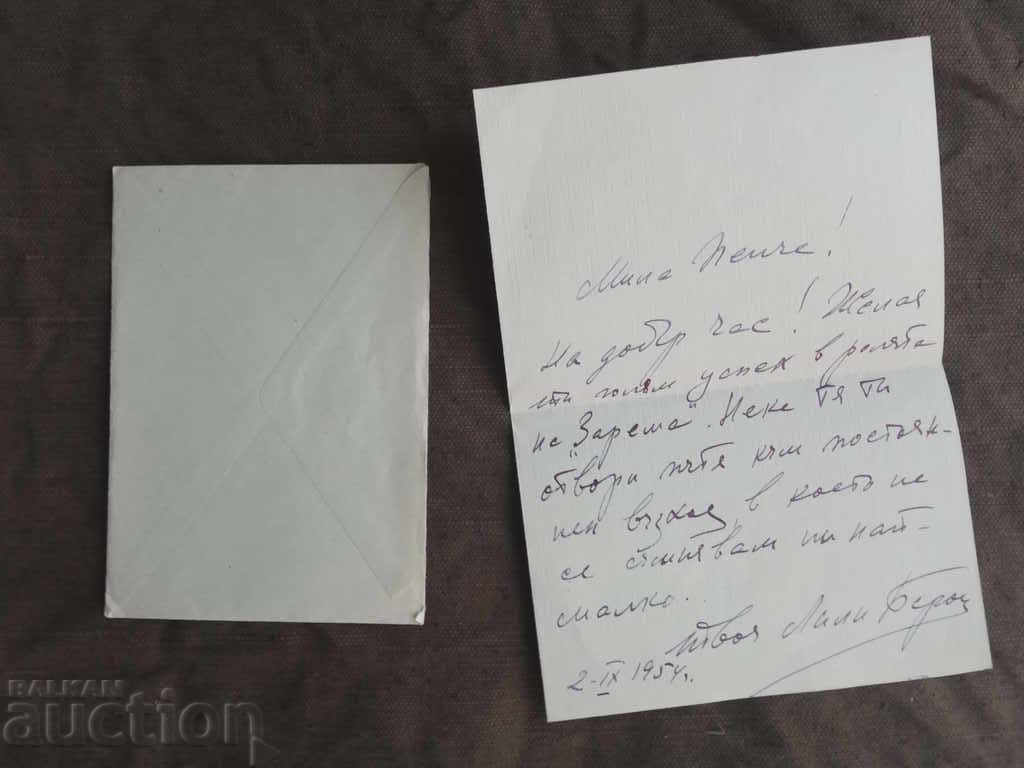 Мила Пенче!
На добър час! Желая
ти голям успех в ролята
на "Зарема". Нека тя ти
отвори пътя към постоян-
нен възход в което не
се съмнявам ни най-
малко.
твоя Лили Берон
2-IX 1954.
BALKAN
auction